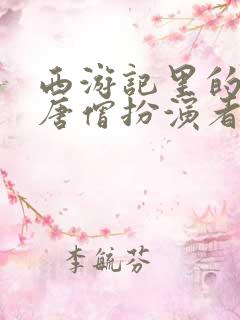 西游记里的
唐僧扮演者
李毓芬